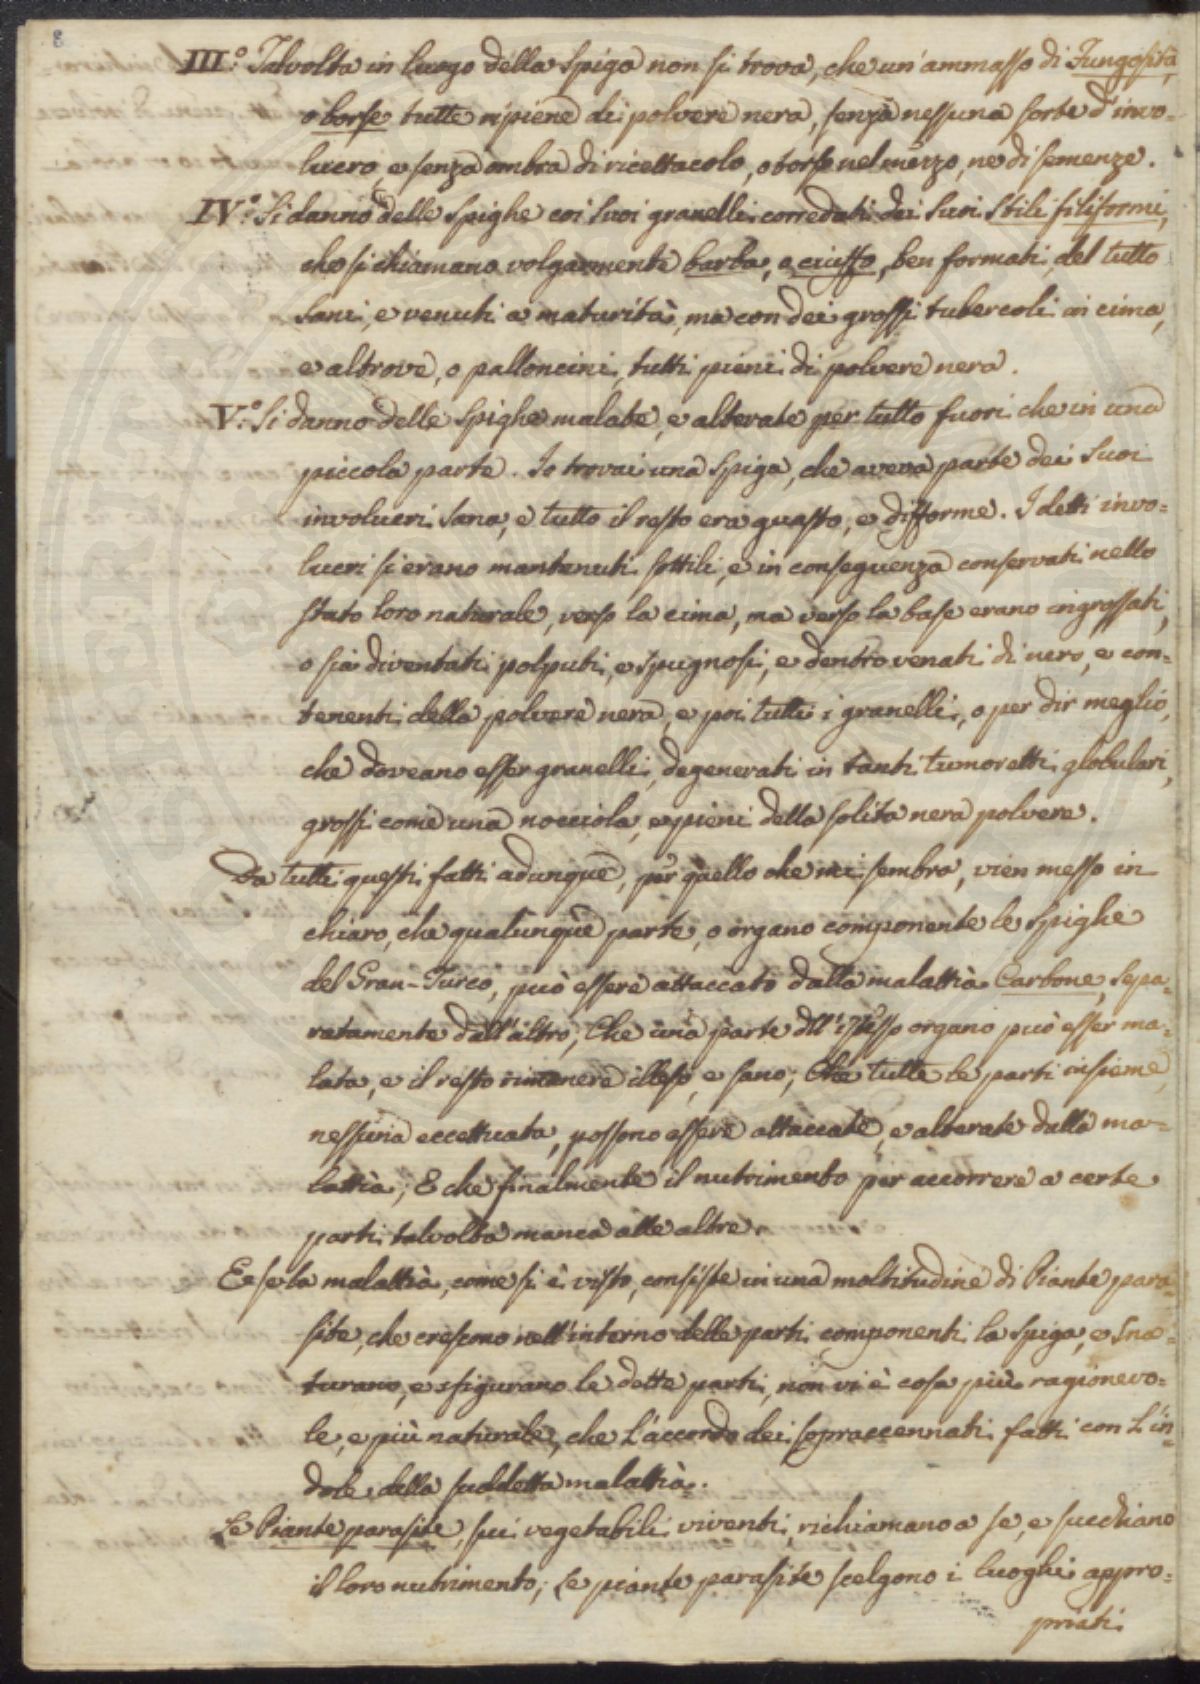 8
III.º Talvolta in luogo della Spiga non si trova, che un'ammasso di Fungosità,
o borse tutte ripiene di polvere nera, senza nessuna sorte d'invo=
lucro, e senza ombra di ricettacolo, o torso nel mezzo, ne di semenze.
IV.º Si danno delle Spighe coi suoi granelli corredati dei suoi Stili filiformi,
che si chiamano volgarmente barba, o ciuffo, ben formati, del tutto
sani, e venuti a maturità, ma con dei grossi tubercoli in cima,
e altrove, o palloncini, tutti pieni di polvere nera.
V.º Si danno delle Spighe malate, e alterate per tutto fuori che in una
piccola parte. Io trovai una Spiga, che aveva parte dei Suoi
involucri Sana, e tutto il resto era guasto, e difforme. I detti invo=
lucri si erano mantenuti sottili, e in conseguenza conservati nello
stato loro naturale, verso la cima, ma verso la base erano ingrossati,
o sia diventati polputi, e spugnosi, e dentro venati di nero, e con=
tenenti della polvere nera, e poi tutti i granelli, o per dir meglio,
che doveano esser granelli, degenerati in tanti tumoretti globulari,
grossi come una nocciola, e pieni della solita nera polvere.
Da tutti questi fatti adunque, per quello che mi sembra, vien messo in
chiaro, che qualunque parte, o organo componente le Spighe
del Gran-Turco, può essere attaccato dalla malattia Carbone, sepa=
ratamente dall'altro; Che una parte dell'istesso organo può esser ma=
lata, e il resto rimanere illeso, e sano; Che tutte le parti insieme,
nessuna eccettuata, possono essere attaccate, e alterate dalla ma=
lattia; E che finalmente il nutrimento per accorrere a certe
parti talvolta manca alle altre.
E se la malattia, come si è visto, consiste in una moltitudine di Piante para=
site, che crescono nell'interno delle parti componenti la spiga, e sna=
turano, e sfigurano le dette parti, non vi è cosa più ragionevo=
le, e più naturale, che l'accordo dei sopraccennati fatti con l'in=
dole della suddetta malattia.
Le Piante parasite, sui vegetabili viventi, richiamano a se, e succhiano
il loro nutrimento; Le piante parasite scelgono i luoghi appro=
priati